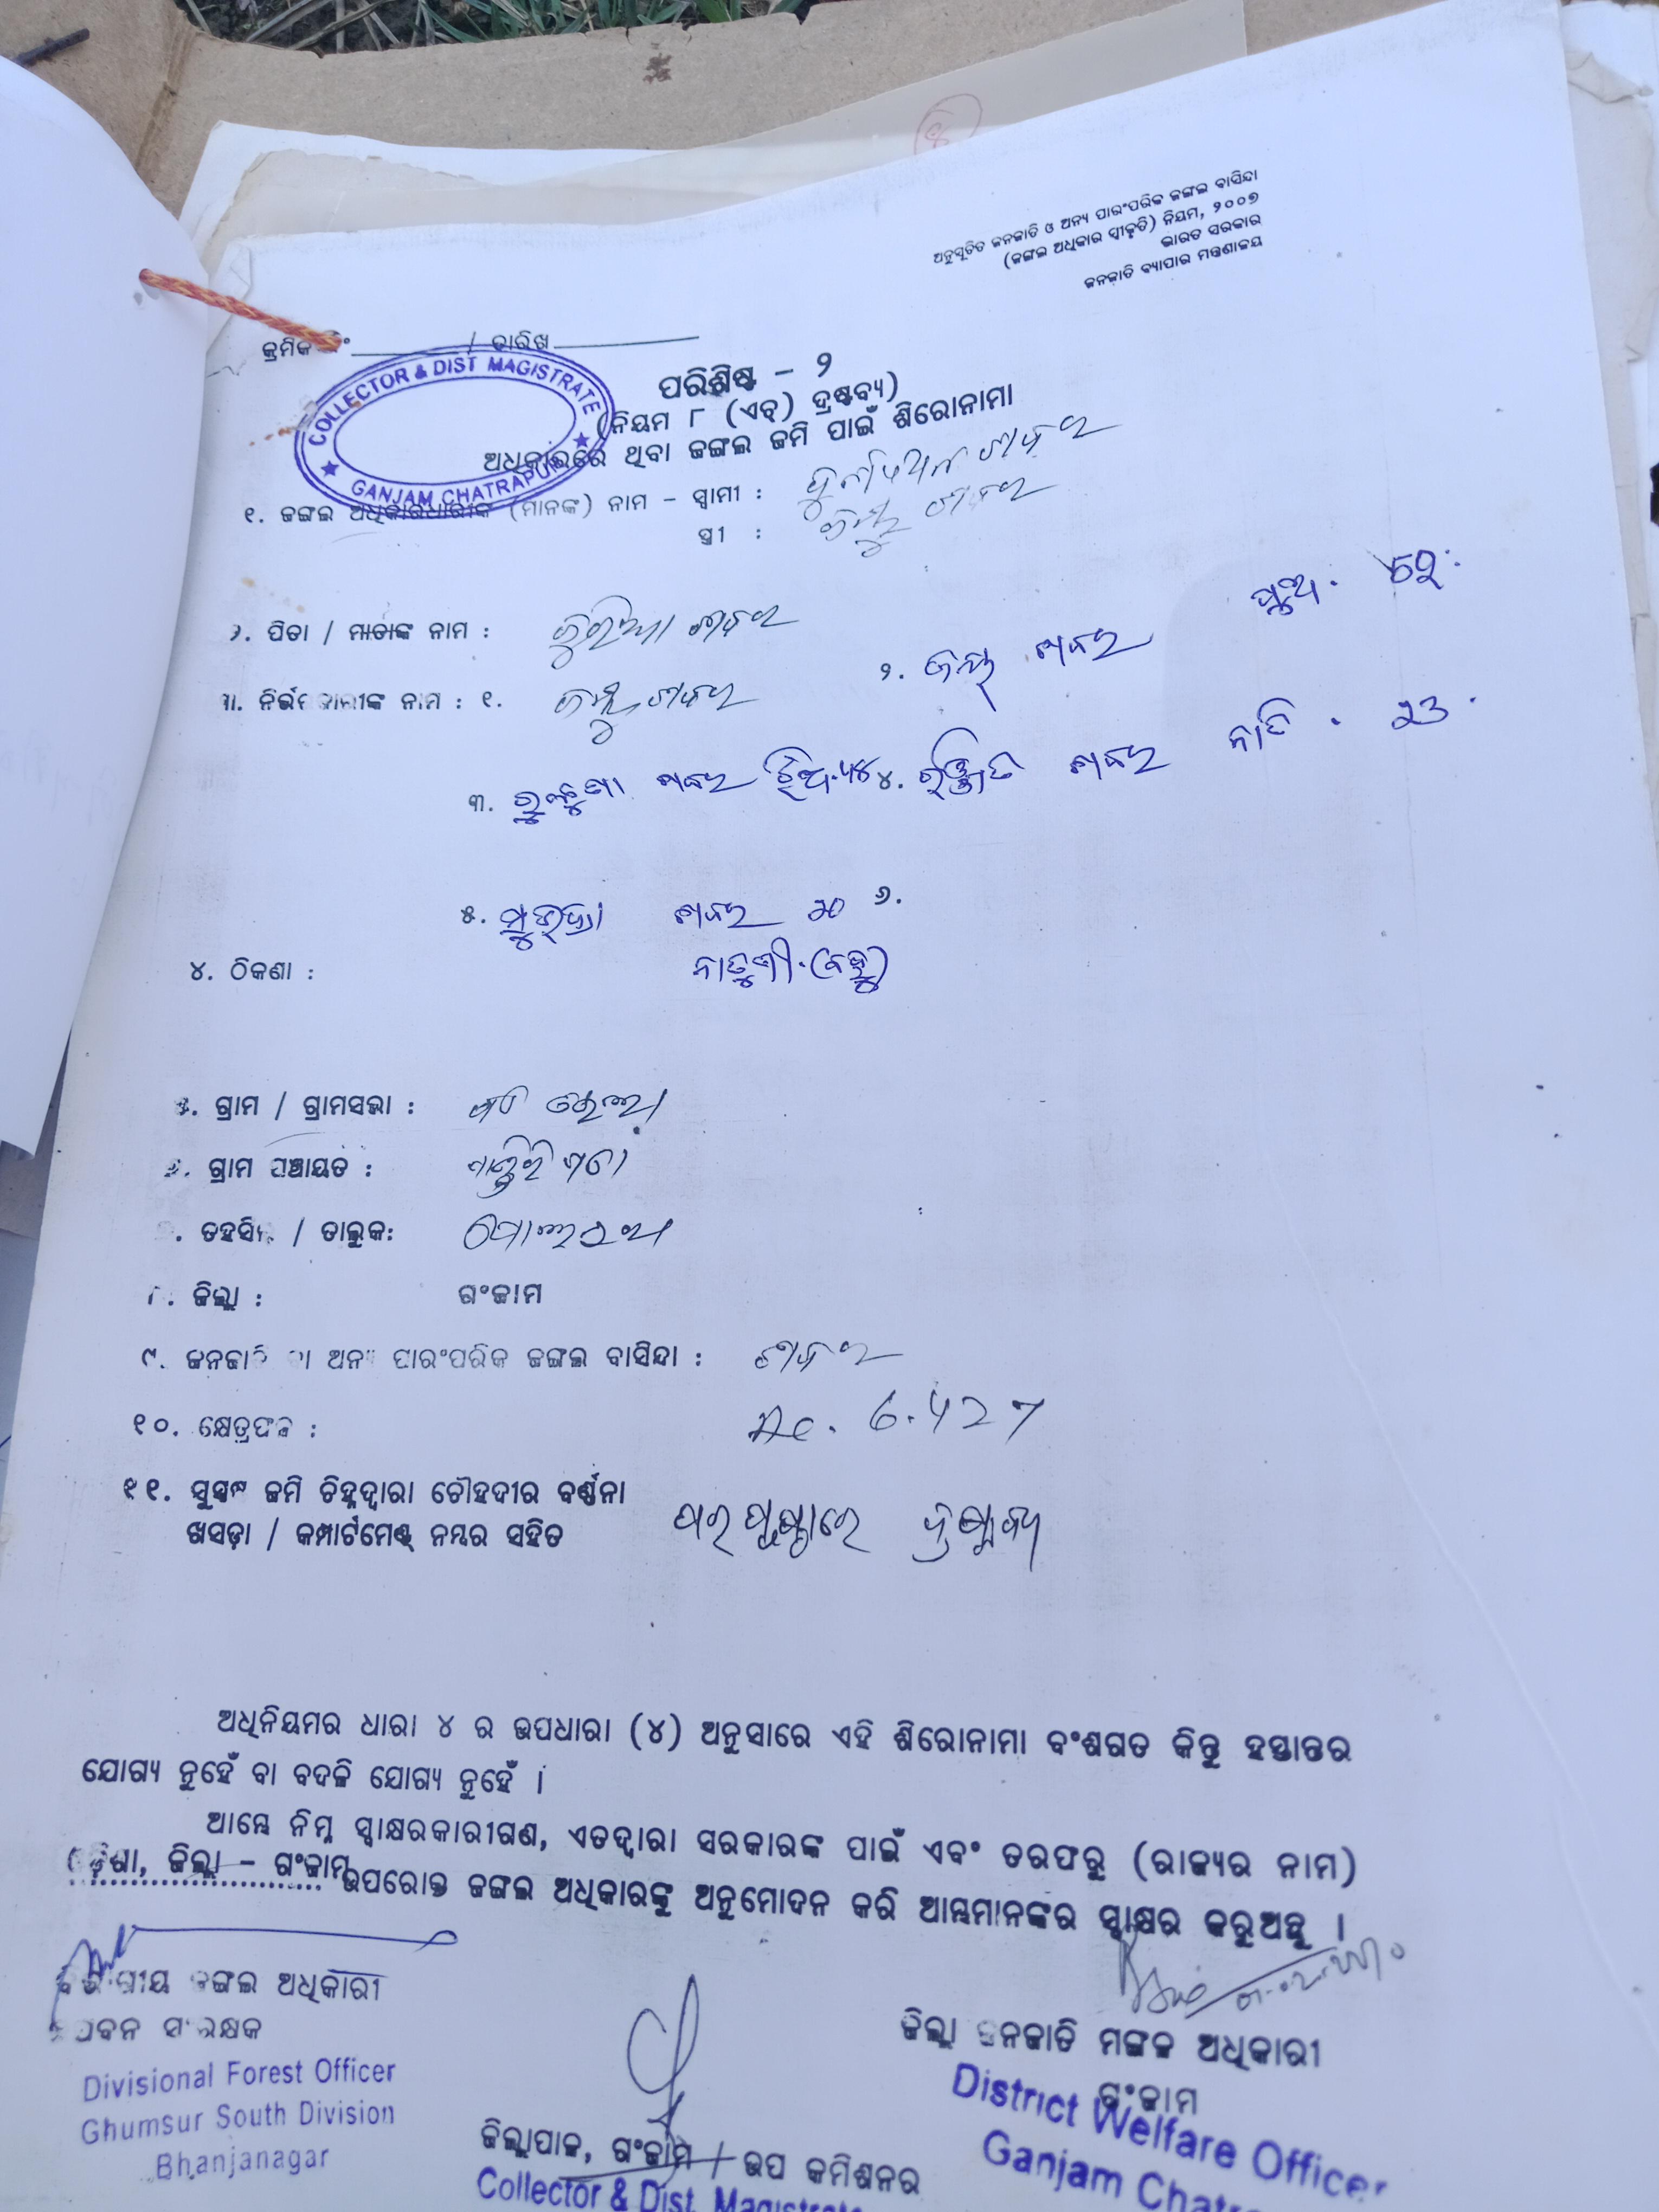 ଅନୁସୂଚିତ ଜନଜାତି ଓ ଅନ୍ୟ ପାରଂପରିକ ଜଙ୍ଗଲ ବାସିନ୍ଦା
(ଜଙ୍ଗଲ ଅଧିକାର ସ୍ୱୀକୃତି) ନିୟମ, ୨୦୦୭
ଭାରତ ସରକାର
ଜନଜାତି ବ୍ୟାପାର ମନ୍ତ୍ରଣାଳୟ
କ୍ରମିକ ନଂ / ତାରିଖ
COLLECTOR & DIST MAGISTRATE
GANJAM CHATRAPUR
ପରିଶିଷ୍ଟ – ୨
(ନିୟମ ୮ (ଏଚ୍) ଦ୍ରଷ୍ଟବ୍ୟ)
ଅଧିକାରରେ ଥିବା ଜଙ୍ଗଲ ଜମି ପାଇଁ ଶିରୋନାମା
୧. ଜଙ୍ଗଲ ଅଧିକାରଧାରୀଙ୍କ (ମାନଙ୍କ) ନାମ – ସ୍ୱାମୀ : ଶବର
ସ୍ତ୍ରୀ : ଶବର
୨. ପିତା / ମାତାଙ୍କ ନାମ : ଶବର
୩. ନିର୍ଭରଶୀଳଙ୍କ ନାମ : ୧. ଶବର ୨. ଶବର ପୁଅ.
୩. ଶବର ଝିଅ ୪. ଶବର ନାତି . ୨୬
୫. ଶବର ୨୦ ୬.
ନାତୁଣୀ (ବୋହୁ)
୪. ଠିକଣା :
୫. ଗ୍ରାମ / ଗ୍ରାମସଭା :
୬. ଗ୍ରାମ ପଞ୍ଚାୟତ :
୭. ତହସିଲ / ତାଲୁକ: ପୋଲସରା
୮. ଜିଲ୍ଲା : ଗଂଜାମ
୯. ଜନଜାତି ବା ଅନ୍ୟ ପାରଂପରିକ ଜଙ୍ଗଲ ବାସିନ୍ଦା : ଶବର
୧୦. କ୍ଷେତ୍ରଫଳ : Ac. 6.427
୧୧. ସୁସ୍ପଷ୍ଟ ଜମି ଚିହ୍ନଦ୍ୱାରା ଚୌହଦୀର ବର୍ଣ୍ଣନା
ଖସଡ଼ା / କମ୍ପାର୍ଟମେଣ୍ଟ୍ ନମ୍ବର ସହିତ ପର ପୃଷ୍ଠାରେ ଦ୍ରଷ୍ଟବ୍ୟ
ଅଧିନିୟମର ଧାରା ୪ ର ଉପଧାରା (୪) ଅନୁସାରେ ଏହି ଶିରୋନାମା ବଂଶଗତ କିନ୍ତୁ ହସ୍ତାନ୍ତର
ଯୋଗ୍ୟ ନୁହେଁ ବା ବଦଳି ଯୋଗ୍ୟ ନୁହେଁ ।
ଆମ୍ଭେ ନିମ୍ନ ସ୍ୱାକ୍ଷରକାରୀଗଣ, ଏତଦ୍ୱାରା ସରକାରଙ୍କ ପାଇଁ ଏବଂ ତରଫରୁ (ରାଜ୍ୟର ନାମ)
ଓଡ଼ିଶା, ଜିଲ୍ଲା – ଗଂଜାମ ଉପରୋକ୍ତ ଜଙ୍ଗଲ ଅଧିକାରଙ୍କୁ ଅନୁମୋଦନ କରି ଆମ୍ଭମାନଙ୍କର ସ୍ୱାକ୍ଷର କରୁଅଛୁ ।
ବିଭାଗୀୟ ଜଙ୍ଗଲ ଅଧିକାରୀ
ଉପବନ ସଂରକ୍ଷକ
Divisional Forest Officer
Ghumsur South Division
Bhanjanagar
ଜିଲ୍ଲାପାଳ, ଗଂଜାମ / ଉପ କମିଶନର
Collector & Dist. Magistrate
ଜିଲ୍ଲା ଜନଜାତି ମଙ୍ଗଳ ଅଧିକାରୀ
ଗଂଜାମ
District Welfare Officer
Ganjam